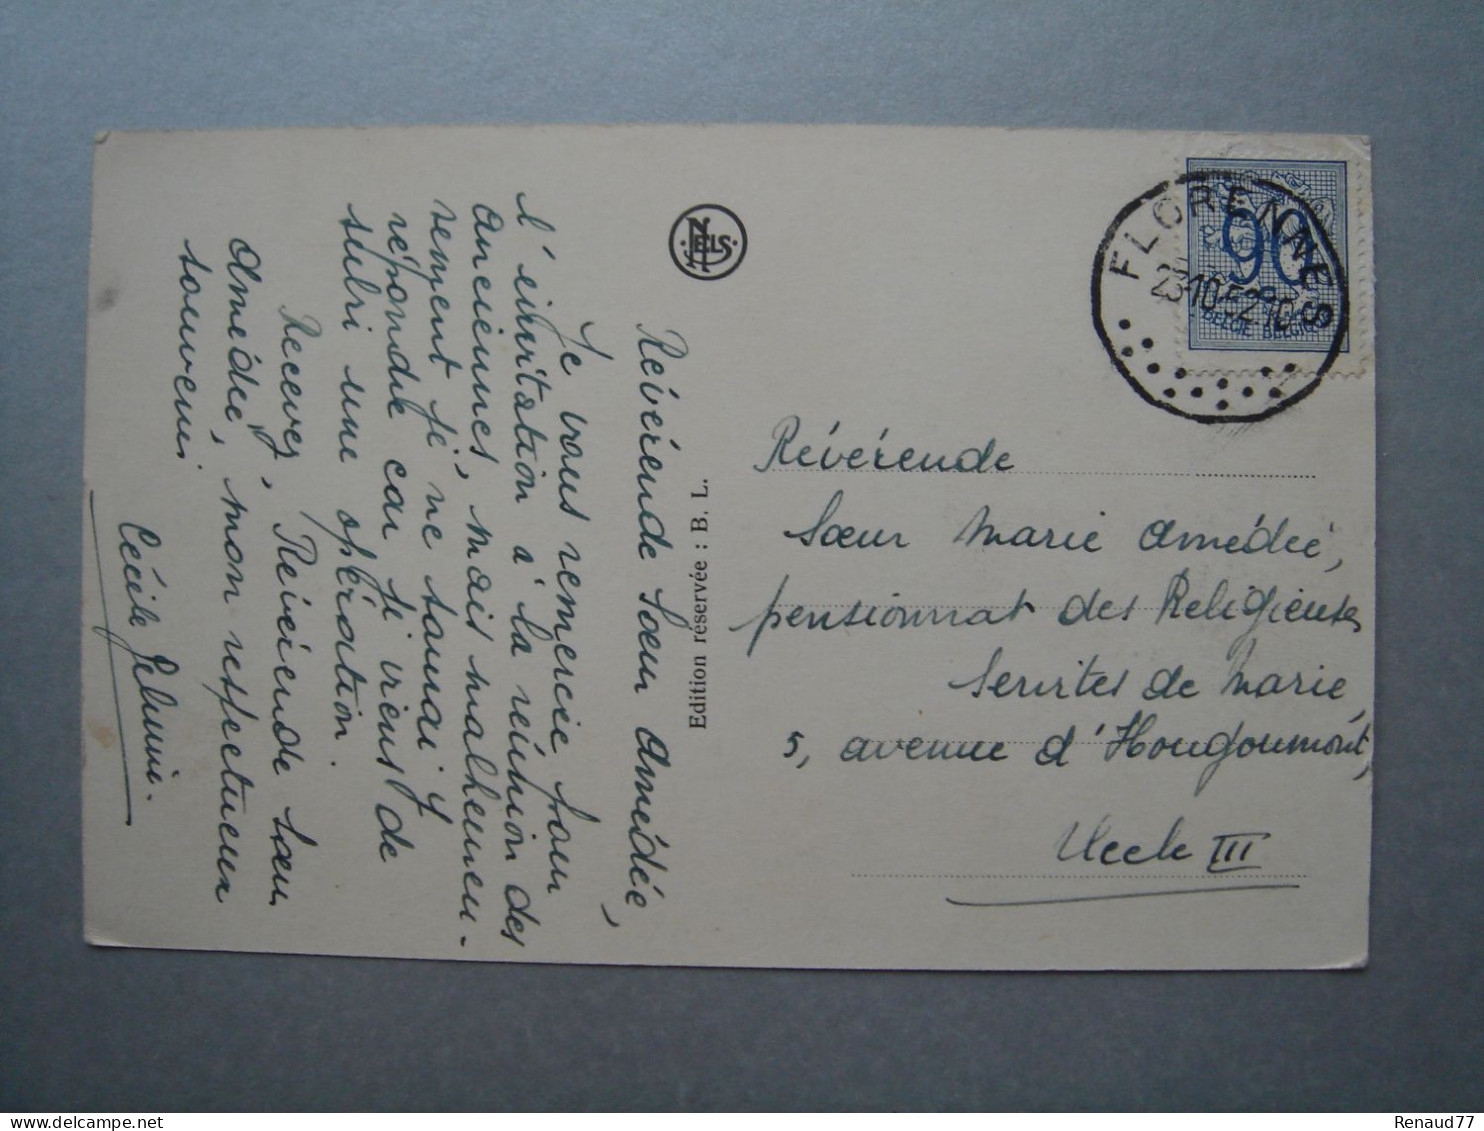 Révérende Sœur Amédée,
Je vous remercie pour
l'invitation à la réunion des
anciennes, mais malheureu-
sement je ne saurai y
répondre car je viens de
subir une opération.
Recevez, Révérende Sœur
Amédée, mon respectueux
souvenir
Cécile
NELS
Edition réservée : B. L.
FLORENNES
23-10-52
90
BELGIE-BELGIQUE
Révérende
Sœur Marie Amédée,
pensionnat des Religieuses
Servites de Marie,
5, avenue d'Hougoumont,
Uccle III
Renaud77